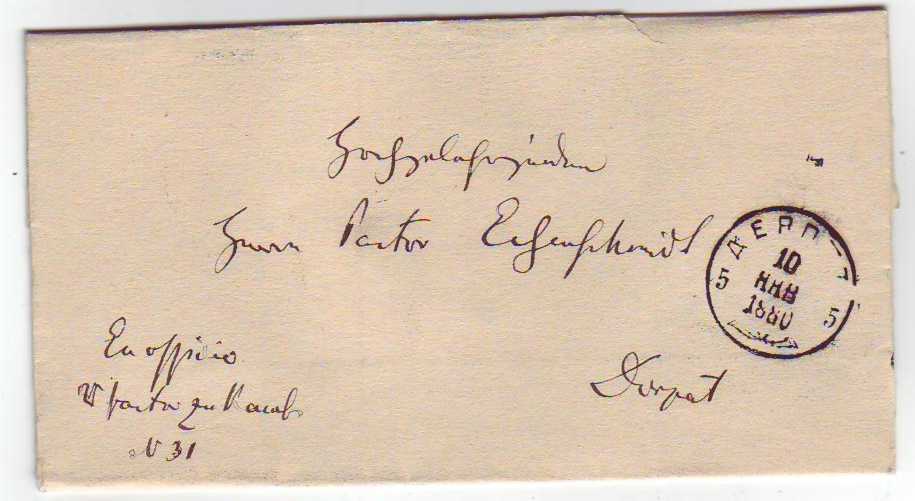 Herrn Pastor Eisenschmidt
Dorpat
Ex officio
N 31
ДЕРПТ
10
ЯНВ
1880
5 5